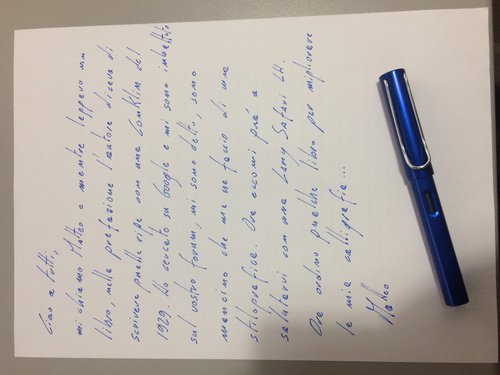 Ciao a tutti,
mi chiamo Matteo e mentre leggevo un
libro, nella prefazione l'autore diceva di
scrivere quelle righe con una Conklin del
1929. Ho cercato su Google e mi sono imbattuto
sul vostro forum, mi sono detto, sono
mancino che me ne faccio di una
stilografica. Ora eccomi quà a
salutarvi con una Lamy Safari LH.
Ora ordino qualche libro per migliorare
la mia calligrafia...
Matteo